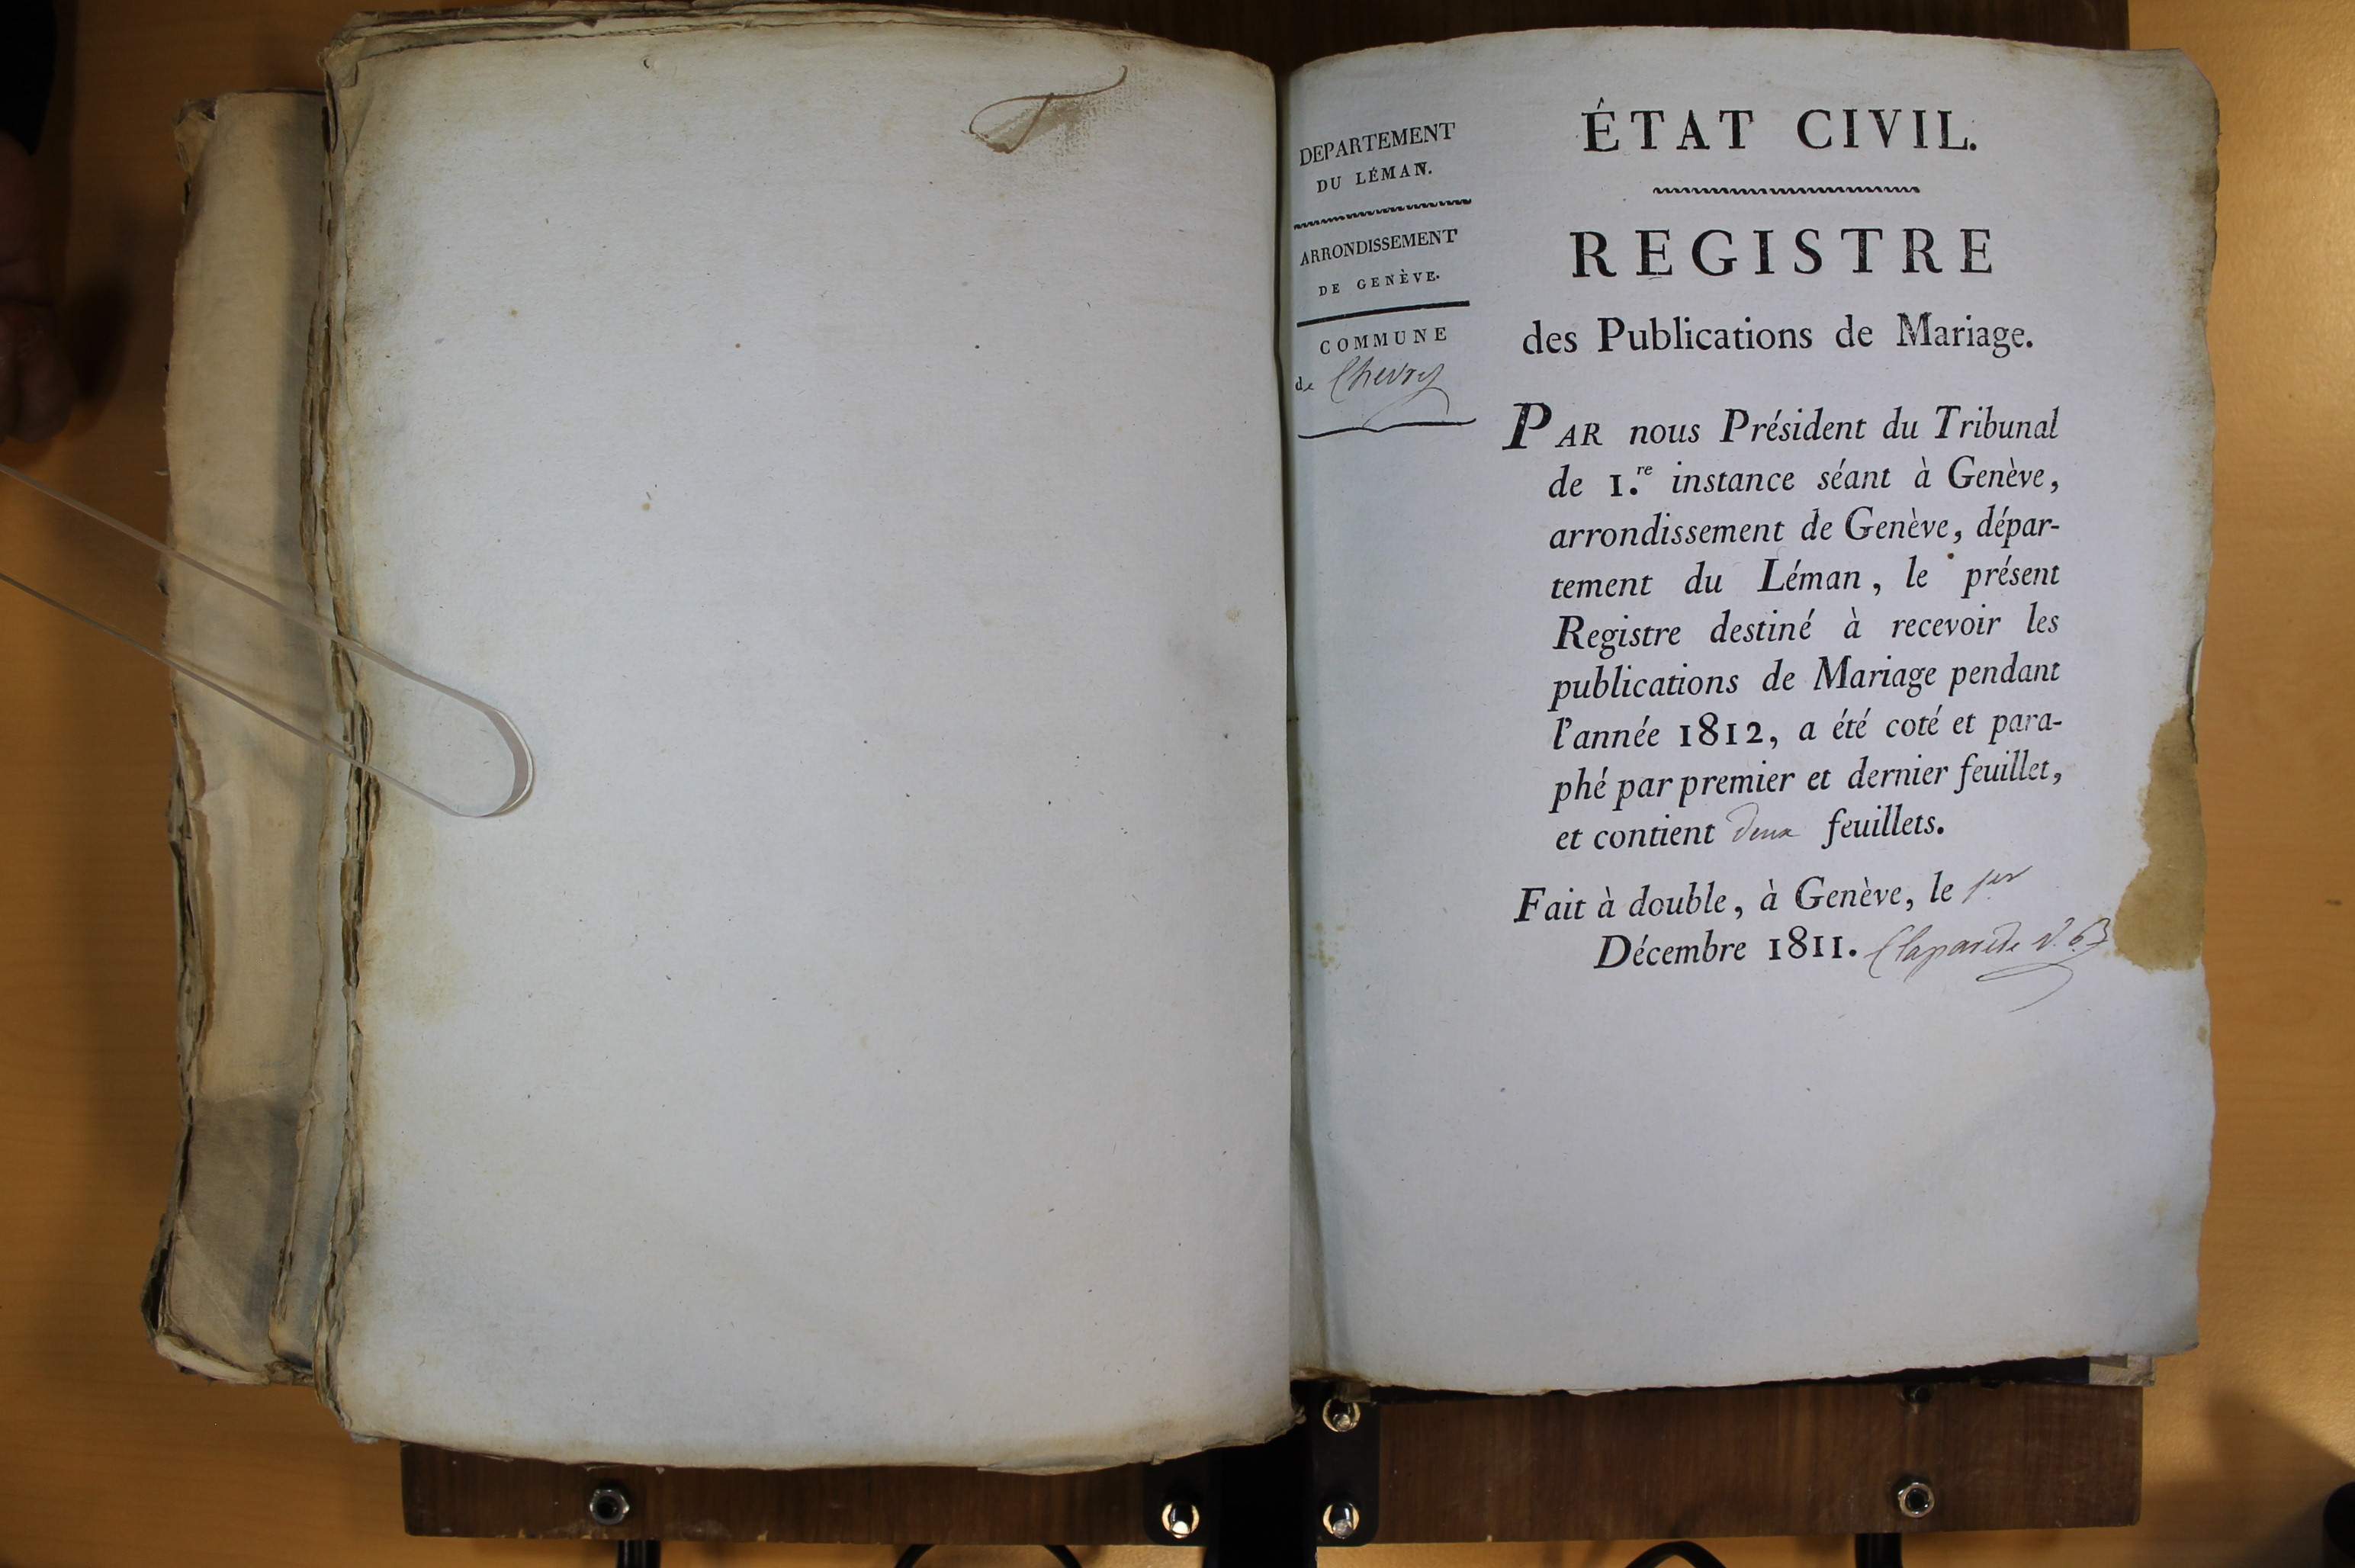 DEPARTEMENT
DU LÉMAN.
ARRONDISSEMENT
DE GENÈVE.
COMMUNE
de Chevry
ÉTAT CIVIL.
REGISTRE
des Publications de Mariage.
PAR nous Président du Tribunal
de 1.re instance séant à Genève,
arrondissement de Genève, dépar-
tement du Léman, le présent
Registre destiné à recevoir les
publications de Mariage pendant
l'année 1812, a été coté et para-
phé par premier et dernier feuillet,
et contient deux feuillets.
Fait à double, à Genève, le 1er
Décembre 1811. Claparede